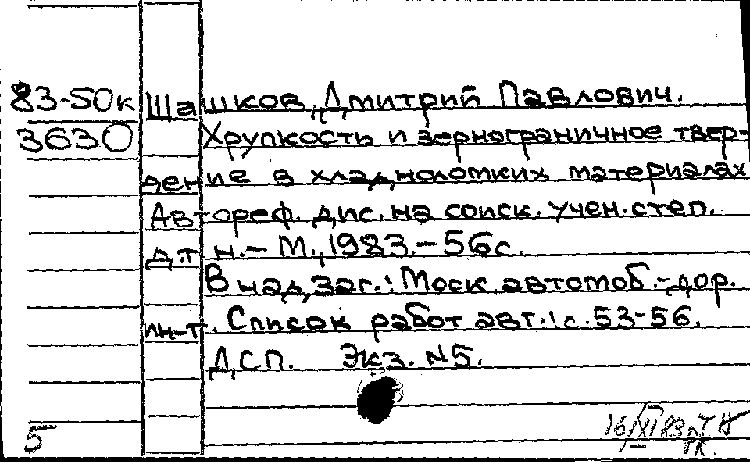 83-50к Шашков, Дмитрий Павлович.
3630 Хрупкость и зернограничное твер-
дение в хладноломких материалах
Автореф. дис. на соиск. учен. степ.
д.т.н. - М., 1983. - 56 с.
В надзаг.: Моск. автомоб.-дор.
ин-т. Список работ авт.: с. 53-56.
ДСП. Экз. №5.
16/XI 83
5